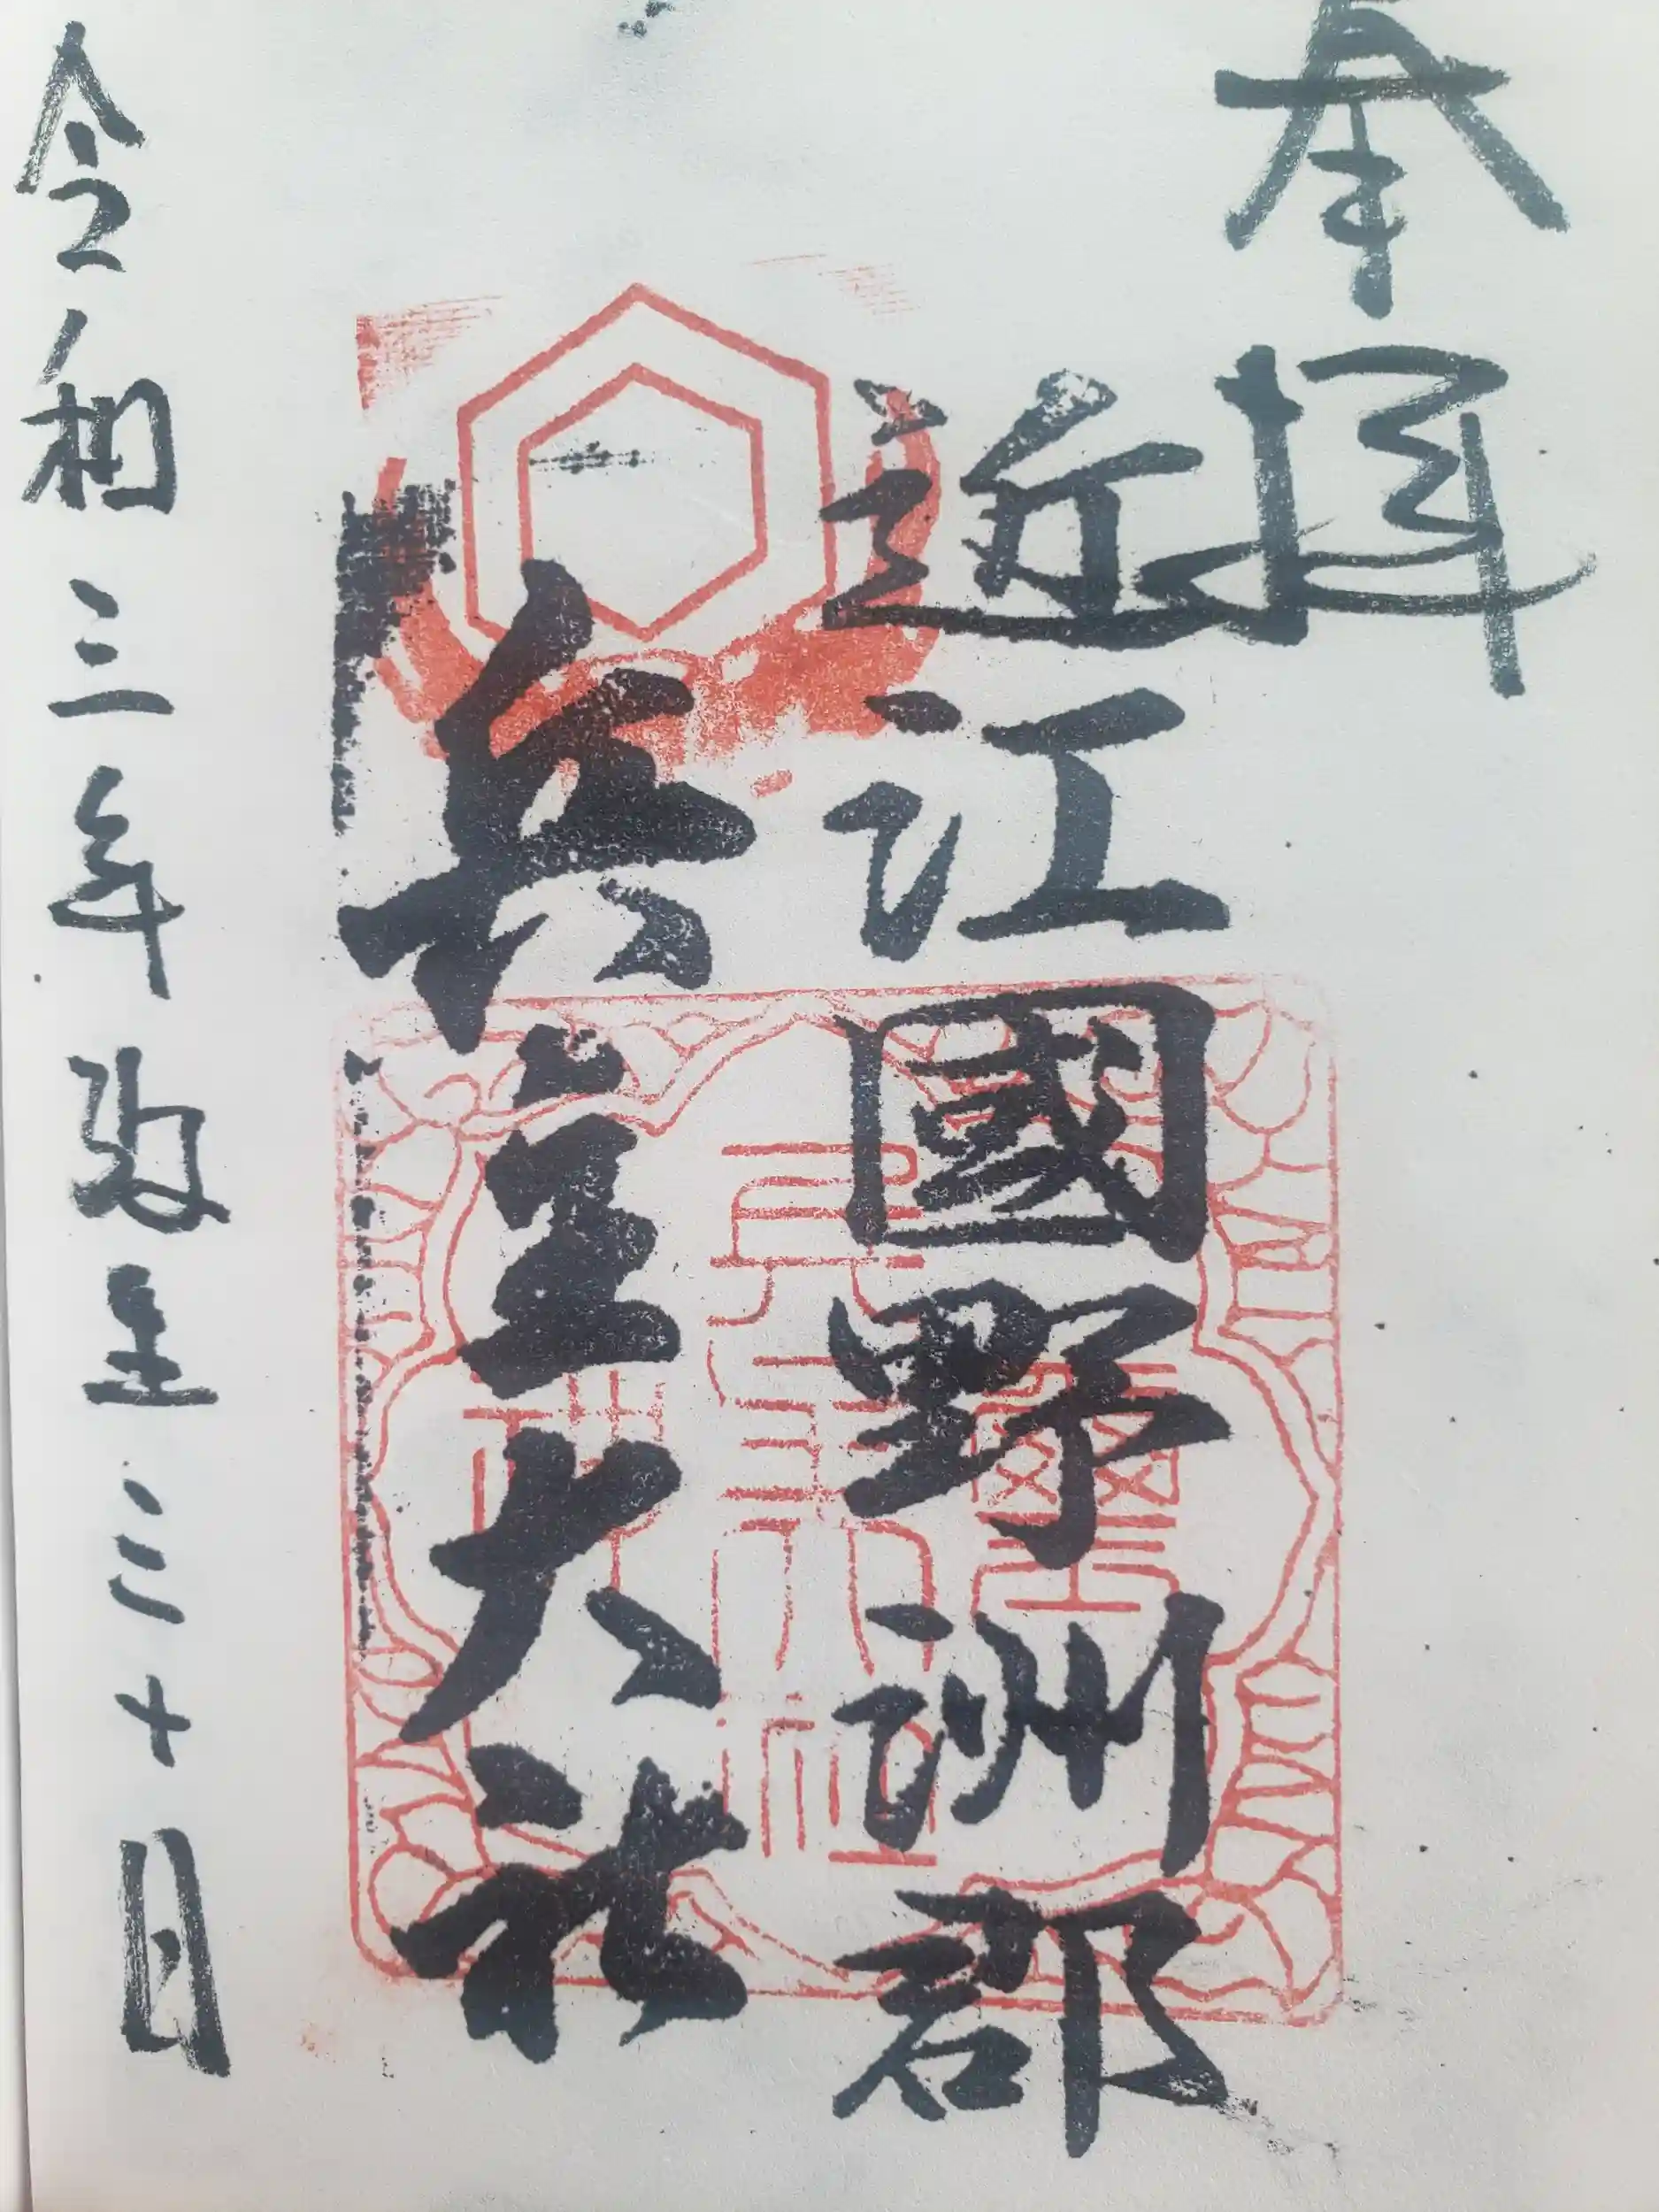 奉拝
近江國野洲郡
兵主大社
令和三年弥生三十日